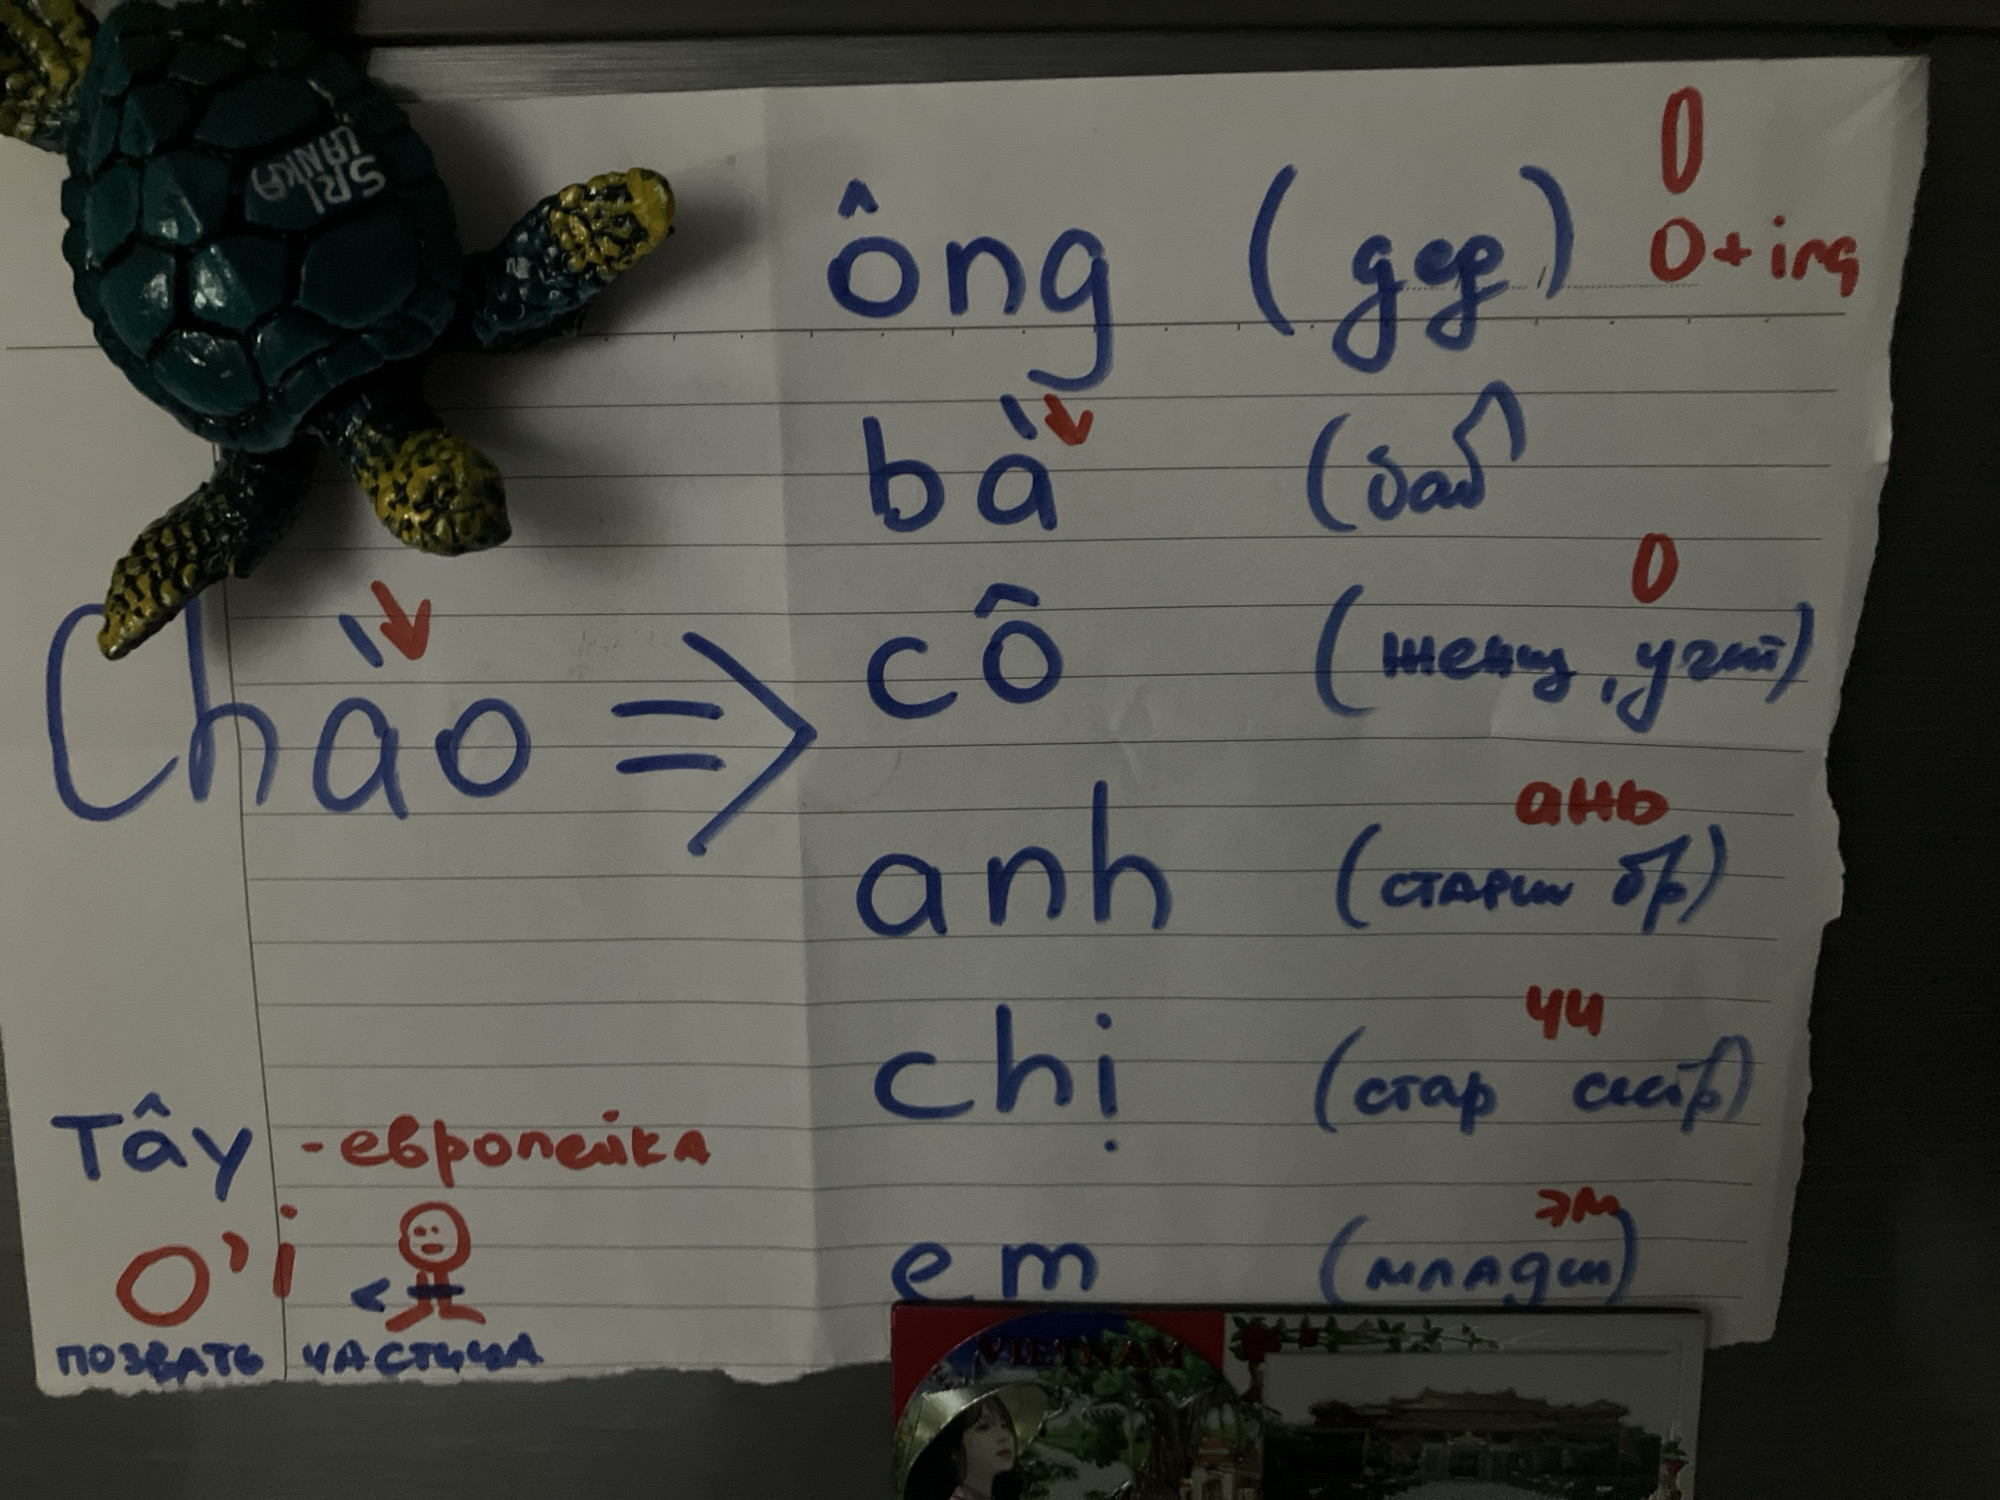 SRI
LANKA
ông (дед) O
O + ing
bà (баб
Chào => cô (женщ, учит) O
anh (старш бр) ань
chị (стар сестр) чи
Tây - европейка
em (младш) эм
O'i
позвать частица
VIETNAM